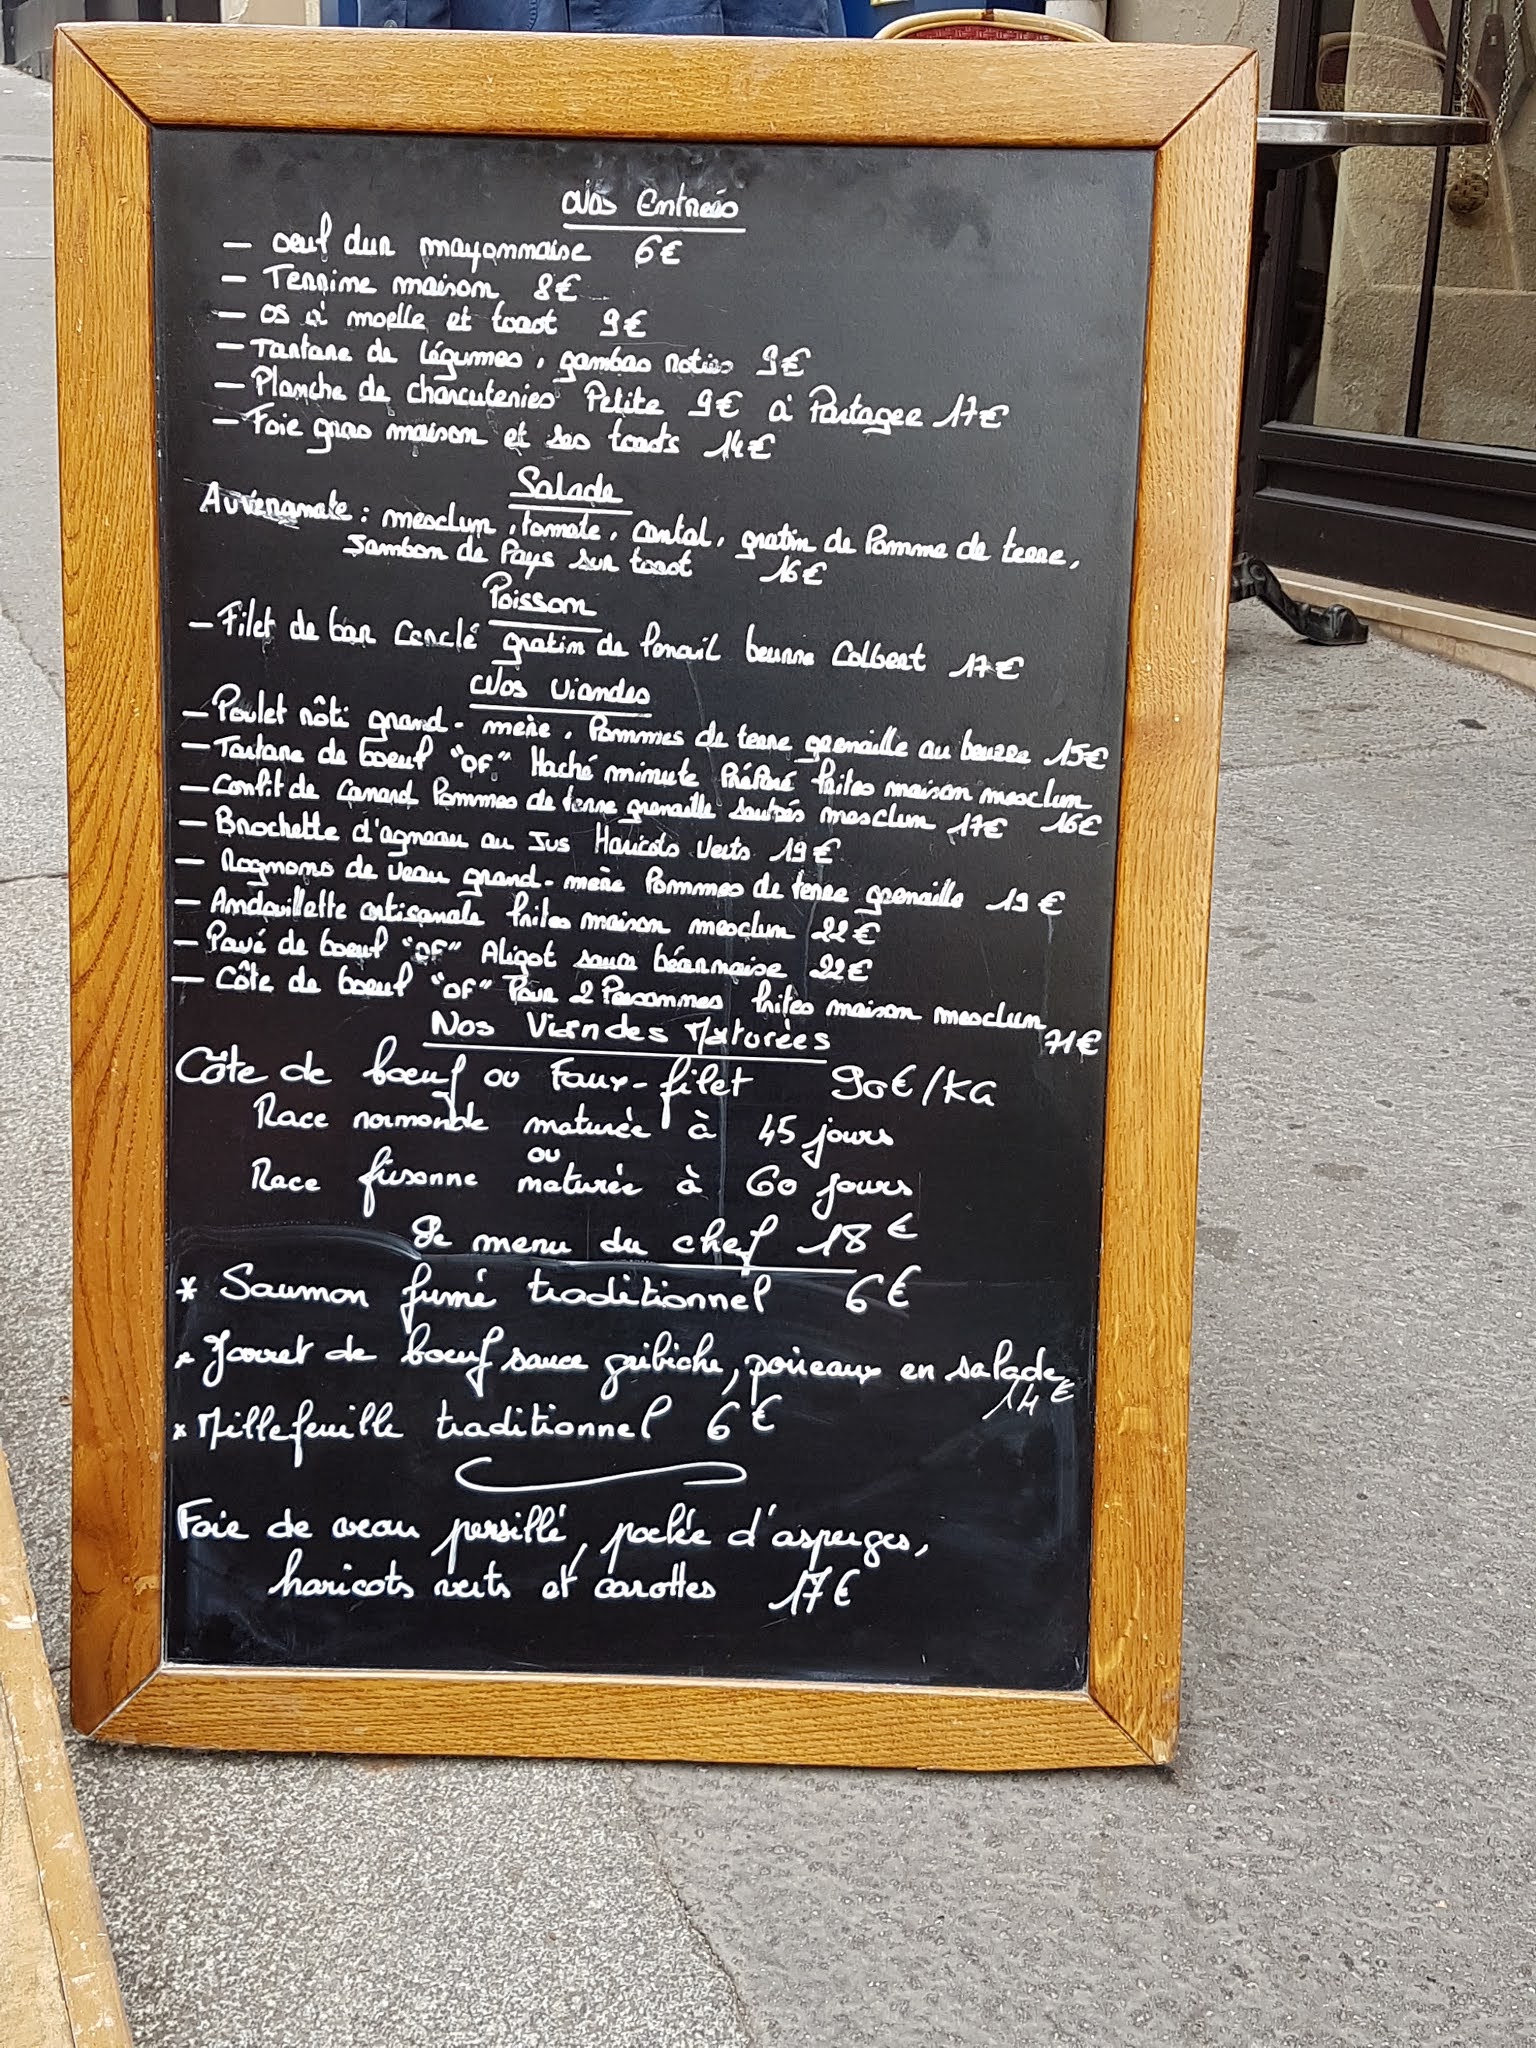 Nos Entrées
— oeuf dur mayonnaise 6€
— Terrine maison 8€
— os à moelle et toast 9€
— Tartare de légumes, gambas roties 9€
— Planche de charcuteries Petite 9€ à Partager 17€
— Foie gras maison et ses toasts 14€
Salade
Auvergnate : mesclun, tomate, cantal, gratin de Pomme de terre,
Jambon de Pays sur toast 16€
Poisson
— Filet de bar Cerclé gratin de fenouil beurre Colbert 17€
Nos Viandes
— Poulet rôti grand-mère, Pommes de terre grenaille au beurre 15€
— Tartare de boeuf "OF" Haché minute Préparé frites maison mesclun
16€
— Confit de Canard Pommes de terre grenaille sautées mesclun 17€
— Brochette d'agneau au Jus Haricots Verts 19€
— Rognons de Veau grand-mère Pommes de terre grenaille 19€
— Andouillette artisanale frites maison mesclun 22€
— Pavé de boeuf "OF" Aligot sauce béarnaise 22€
— Côte de boeuf "OF" Pour 2 Personnes frites maison mesclun
71€
Nos Viandes Maturées
Côte de boeuf ou Faux-filet 90€/KG
Race normande maturée à 45 jours
ou
Race frisonne maturée à 60 jours
Le menu du chef 18€
* Saumon fumé traditionnel 6€
* Jarret de boeuf sauce gribiche, poireaux en salade
14€
* Millefeuille traditionnel 6€
Foie de veau persillé, poêlée d'asperges,
haricots verts et carottes 17€